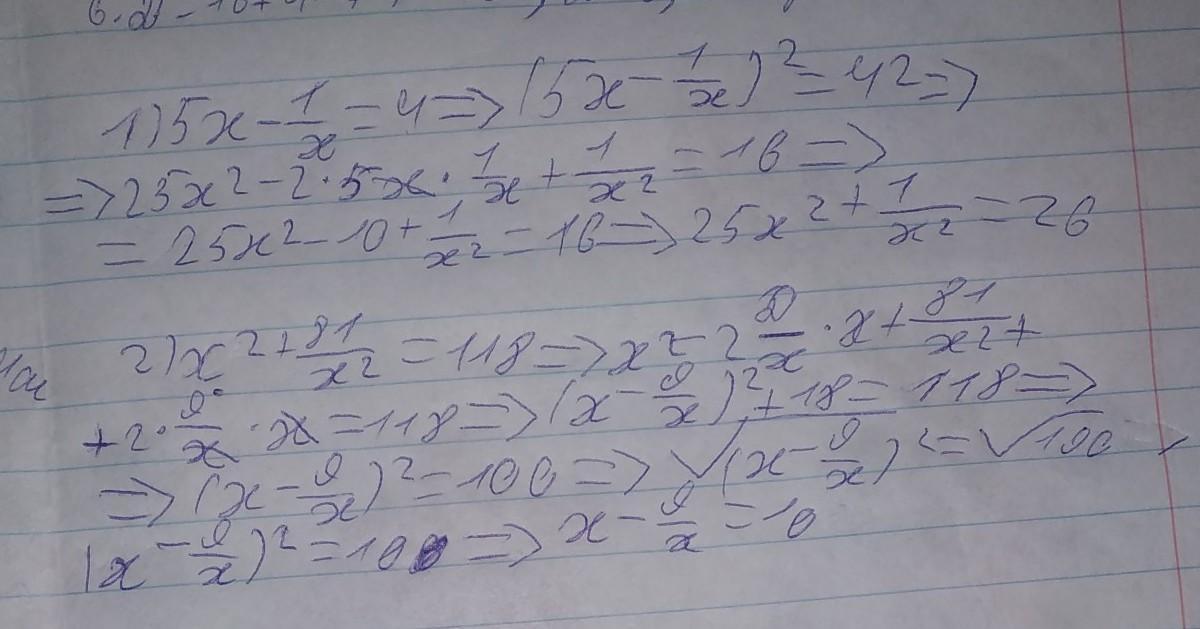 1) 5x - 1/x = 4 => (5x - 1/x)² = 4² =>
=> 25x² - 2·5x·1/x + 1/x² = 16 =>
= 25x² - 10 + 1/x² = 16 => 25x² + 1/x² = 26
2) x² + 81/x² = 118 => x² - 2 9/x · x + 81/x² +
+ 2·9/x·x = 118 => (x - 9/x)² + 18 = 118 =>
=> (x - 9/x)² = 100 => √(x - 9/x)² = √100
(x - 9/x)² = 100 => x - 9/x = 10